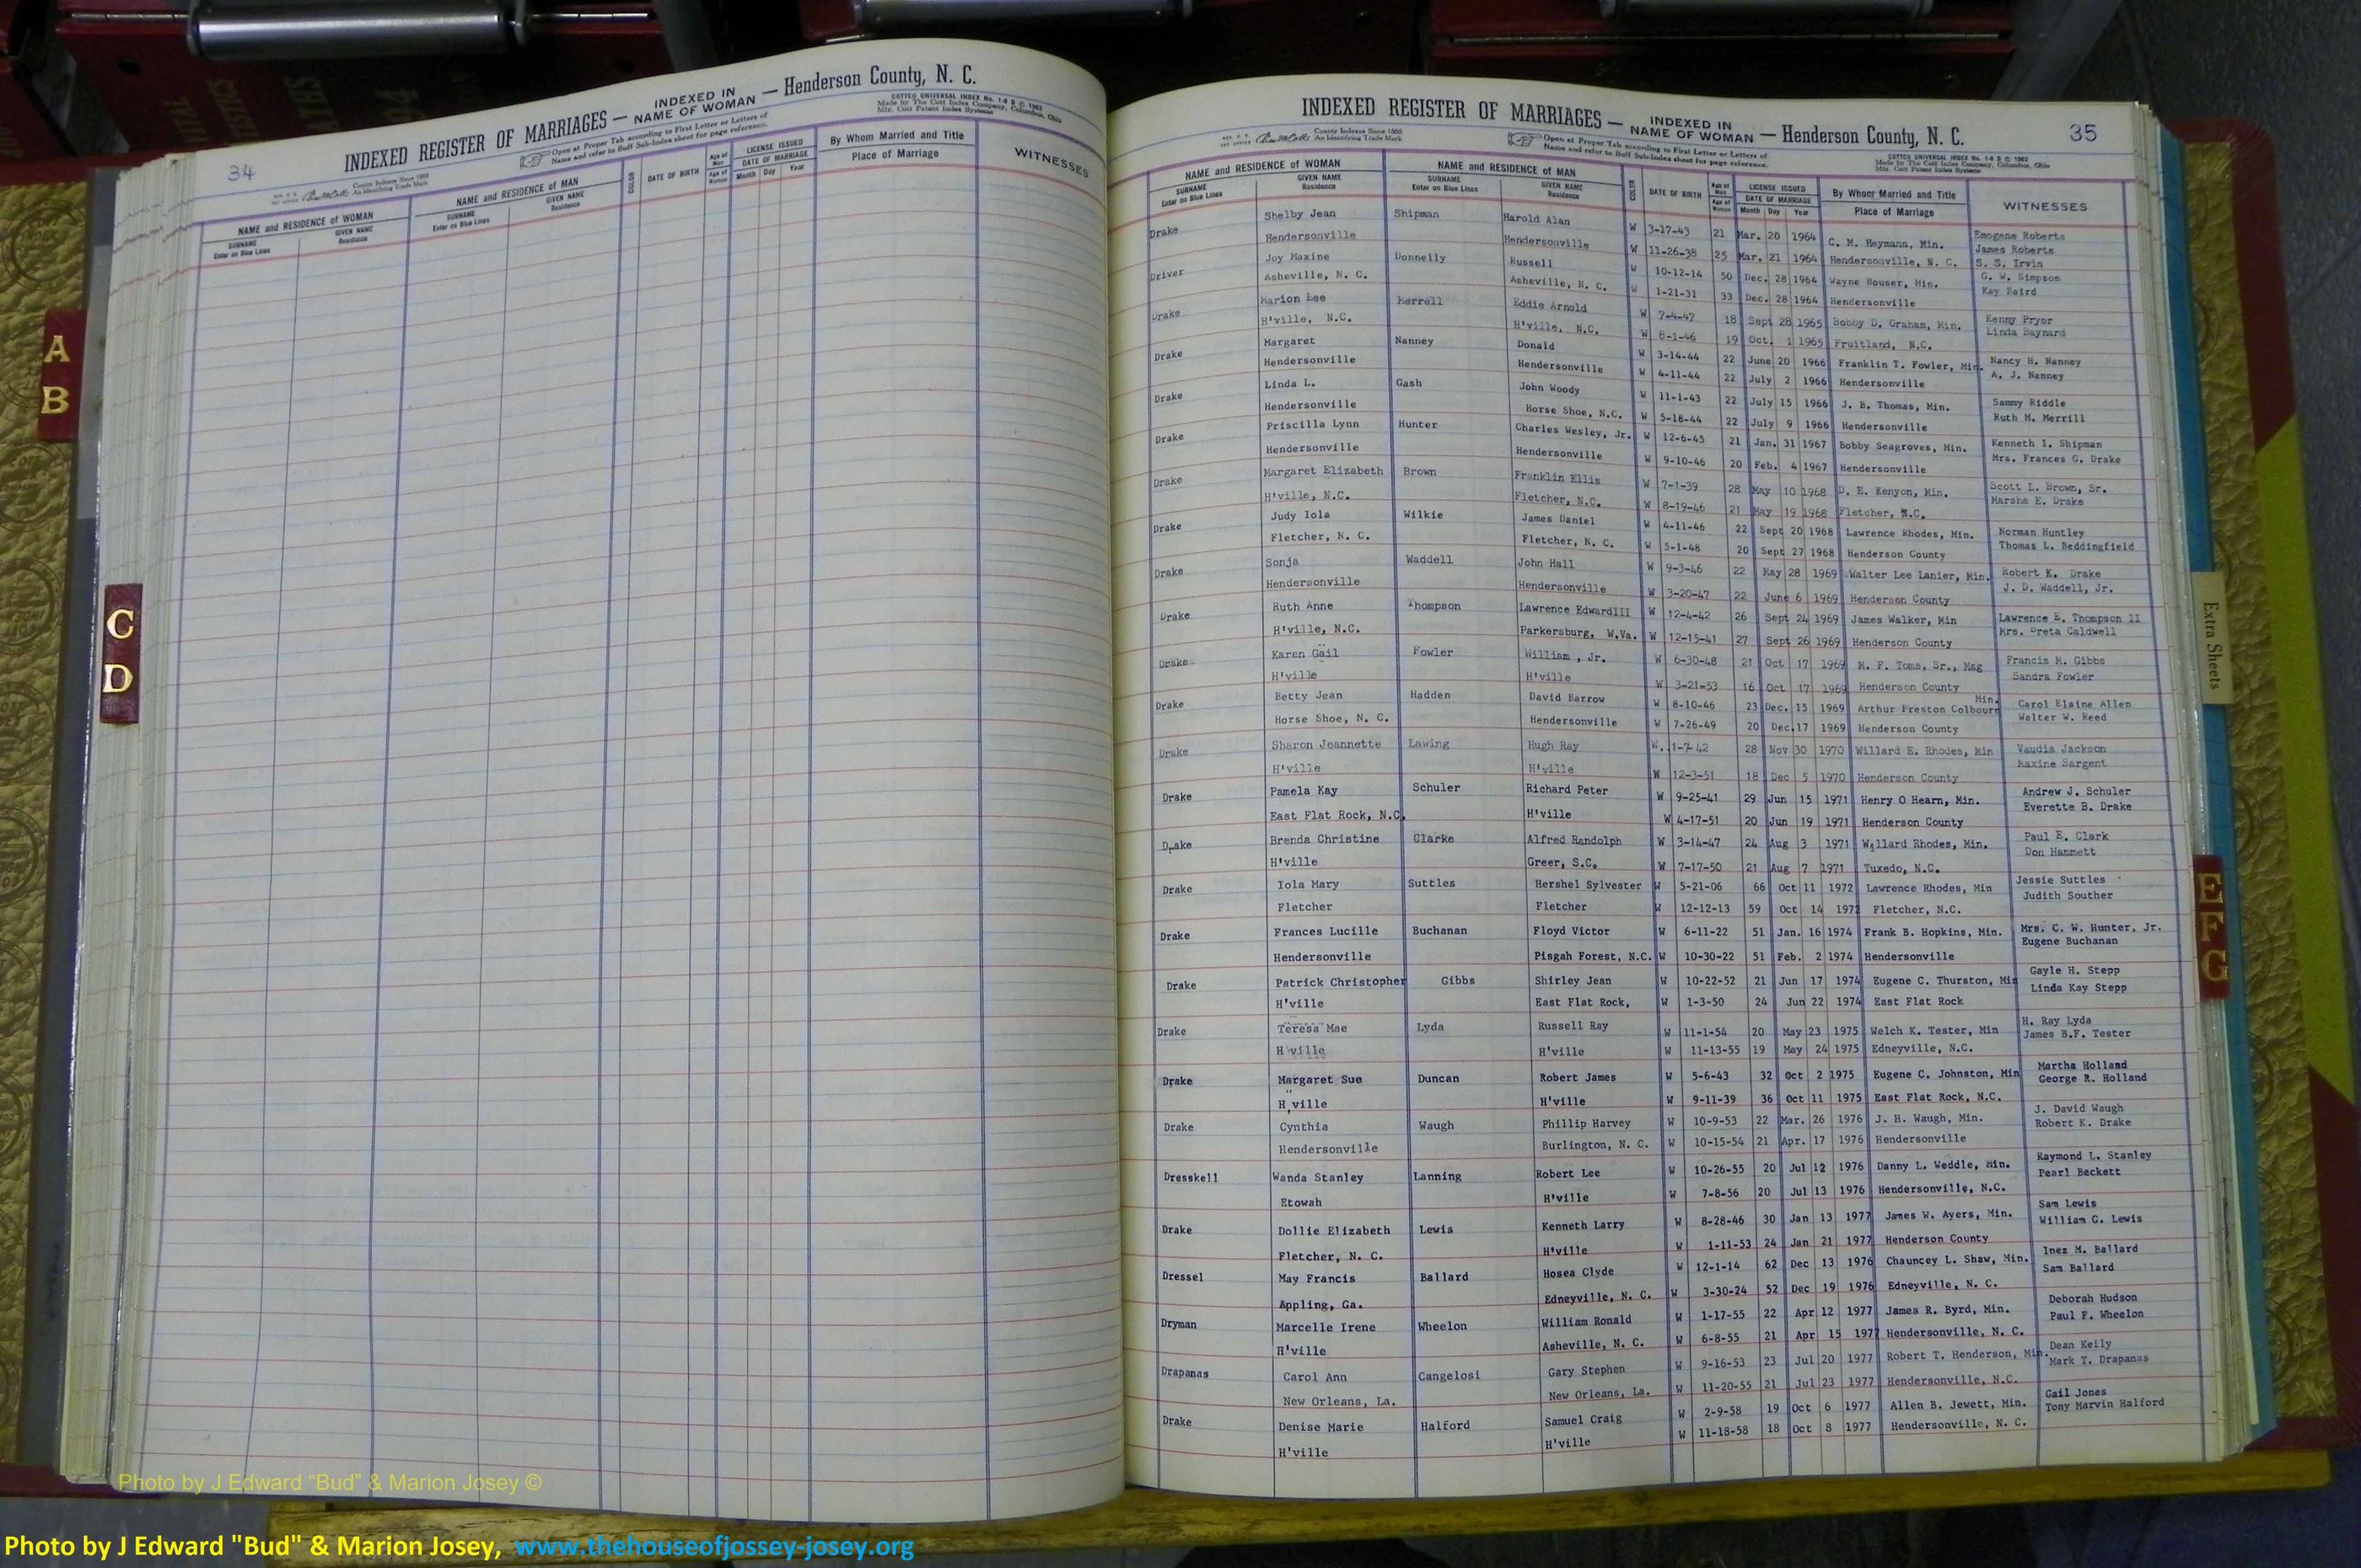 34
INDEXED REGISTER OF MARRIAGES — INDEXED IN NAME OF WOMAN — Henderson County, N. C.
County Indexes Since 1888
An Identifying Trade Mark
Open at Proper Tab according to First Letter or Letters of
Name and refer to Buff Sub-Index sheet for page reference.
COTTCO UNIVERSAL INDEX No. 1-8 B © 1962
Made by The Cott Index Company, Columbus, Ohio
Mfr. Cott Patent Index Systems
NAME and RESIDENCE of WOMAN
SURNAME
Enter on Blue Lines
GIVEN NAME
Residence
NAME and RESIDENCE of MAN
SURNAME
Enter on Blue Lines
GIVEN NAME
Residence
COLOR
DATE OF BIRTH
Age of Man
Age of Woman
LICENSE ISSUED
DATE OF MARRIAGE
Month Day Year
By Whom Married and Title
Place of Marriage
WITNESSES
INDEXED REGISTER OF MARRIAGES — INDEXED IN NAME OF WOMAN — Henderson County, N. C.
35
County Indexes Since 1888
An Identifying Trade Mark
Open at Proper Tab according to First Letter or Letters of
Name and refer to Buff Sub-Index sheet for page reference.
COTTCO UNIVERSAL INDEX No. 1-8 B © 1962
Made by The Cott Index Company, Columbus, Ohio
Mfr. Cott Patent Index Systems
NAME and RESIDENCE of WOMAN
SURNAME
Enter on Blue Lines
GIVEN NAME
Residence
NAME and RESIDENCE of MAN
SURNAME
Enter on Blue Lines
GIVEN NAME
Residence
COLOR
DATE OF BIRTH
Age of Man
Age of Woman
LICENSE ISSUED
DATE OF MARRIAGE
Month Day Year
By Whom Married and Title
Place of Marriage
WITNESSES
Drake Shelby Jean Shipman Harold Alan W 3-17-43 21 Mar. 20 1964 C. M. Heymann, Min. Emogene Roberts
Hendersonville Hendersonville W 11-26-38 25 Mar. 21 1964 Hendersonville, N. C. James Roberts
S. S. Irvin
Driver Joy Maxine Donnelly Russell W 10-12-14 50 Dec. 28 1964 Wayne Houser, Min. G. W. Simpson
Asheville, N. C. Asheville, N. C. W 1-21-31 33 Dec. 28 1964 Hendersonville Kay Baird
Drake Marion Lee Merrell Eddie Arnold W 7-4-47 18 Sept 28 1965 Bobby D. Graham, Min. Kenny Pryor
H'ville, N.C. H'ville, N.C. W 8-1-46 19 Oct. 1 1965 Fruitland, N.C. Linda Baynard
Drake Margaret Nanney Donald W 3-14-44 22 June 20 1966 Franklin T. Fowler, Min. Nancy H. Nanney
Hendersonville Hendersonville W 4-11-44 22 July 2 1966 Hendersonville A. J. Nanney
Drake Linda L. Gash John Woody W 11-1-43 22 July 15 1966 J. B. Thomas, Min. Sammy Riddle
Hendersonville Horse Shoe, N.C. W 5-18-44 22 July 9 1966 Hendersonville Ruth M. Merrill
Drake Priscilla Lynn Hunter Charles Wesley, Jr. W 12-6-45 21 Jan. 31 1967 Bobby Seagroves, Min. Kenneth I. Shipman
Hendersonville Hendersonville W 9-10-46 20 Feb. 4 1967 Hendersonville Mrs. Frances G. Drake
Drake Margaret Elizabeth Brown Franklin Ellis W 7-1-39 28 May 10 1968 D. E. Kenyon, Min. Scott L. Brown, Sr.
H'ville, N.C. Fletcher, N.C. W 8-19-46 21 May 19 1968 Fletcher, N.C. Marsha E. Drake
Drake Judy Iola Wilkie James Daniel W 4-11-46 22 Sept 20 1968 Lawrence Rhodes, Min. Norman Huntley
Fletcher, N. C. Fletcher, N. C. W 5-1-48 20 Sept 27 1968 Henderson County Thomas L. Beddingfield
Drake Sonja Waddell John Hall W 9-3-46 22 May 28 1969 Walter Lee Lanier, Min. Robert K. Drake
Hendersonville Hendersonville W 3-20-47 22 June 6 1969 Henderson County J. D. Waddell, Jr.
Drake Ruth Anne Thompson Lawrence EdwardIII W 12-4-42 26 Sept 24 1969 James Walker, Min Lawrence E. Thompson II
H'ville, N.C. Parkersburg, W.Va. W 12-15-41 27 Sept 26 1969 Henderson County Mrs. Preta Caldwell
Drake Karen Gail Fowler William , Jr. W 6-30-48 21 Oct 17 1969 M. F. Toms, Sr., Mag Francis M. Gibbs
H'ville H'ville W 3-21-53 16 Oct 17 1969 Henderson County Sandra Fowler
Drake Betty Jean Hadden David Barrow W 8-10-46 23 Dec. 15 1969 Arthur Preston Colbourn Min. Carol Elaine Allen
Horse Shoe, N. C. Hendersonville W 7-26-49 20 Dec.17 1969 Henderson County Walter W. Reed
Drake Sharon Jeannette Lawing Hugh Ray W. 1-7-42 28 Nov 30 1970 Willard E. Rhodes, Min Vaudia Jackson
H'ville H'ville W 12-3-51 18 Dec 5 1970 Henderson County Maxine Sargent
Drake Pamela Kay Schuler Richard Peter W 9-25-41 29 Jun 15 1971 Henry O Hearn, Min. Andrew J. Schuler
East Flat Rock, N.C. H'ville W 4-17-51 20 Jun 19 1971 Henderson County Everette B. Drake
Drake Brenda Christine Clarke Alfred Randolph W 3-14-47 24 Aug 3 1971 Willard Rhodes, Min. Paul E. Clark
H'ville Greer, S.C. W 7-17-50 21 Aug 7 1971 Tuxedo, N.C. Don Hammett
Drake Iola Mary Suttles Hershel Sylvester W 5-21-06 66 Oct 11 1972 Lawrence Rhodes, Min Jessie Suttles
Fletcher Fletcher W 12-12-13 59 Oct 14 1972 Fletcher, N.C. Judith Souther
Drake Frances Lucille Buchanan Floyd Victor W 6-11-22 51 Jan. 16 1974 Frank B. Hopkins, Min. Mrs. C. W. Hunter, Jr.
Hendersonville Pisgah Forest, N.C. W 10-30-22 51 Feb. 2 1974 Hendersonville Eugene Buchanan
Drake Patrick Christopher Gibbs Shirley Jean W 10-22-52 21 Jun 17 1974 Eugene C. Thurston, Min Gayle H. Stepp
H'ville East Flat Rock, W 1-3-50 24 Jun 22 1974 East Flat Rock Linda Kay Stepp
Drake Teresa Mae Lyda Russell Ray W 11-1-54 20 May 23 1975 Welch K. Tester, Min H. Ray Lyda
H'ville H'ville W 11-13-55 19 May 24 1975 Edneyville, N.C. James B.F. Tester
Drake Margaret Sue Duncan Robert James W 5-6-43 32 Oct 2 1975 Eugene C. Johnston, Min Martha Holland
H,ville H'ville W 9-11-39 36 Oct 11 1975 East Flat Rock, N.C. George R. Holland
Drake Cynthia Waugh Phillip Harvey W 10-9-53 22 Mar. 26 1976 J. H. Waugh, Min. J. David Waugh
Hendersonville Burlington, N. C. W 10-15-54 21 Apr. 17 1976 Hendersonville Robert K. Drake
Dresskell Wanda Stanley Lanning Robert Lee W 10-26-55 20 Jul 12 1976 Danny L. Weddle, Min. Raymond L. Stanley
Etowah H'ville W 7-8-56 20 Jul 13 1976 Hendersonville, N.C. Pearl Beckett
Drake Dollie Elizabeth Lewis Kenneth Larry W 8-28-46 30 Jan 13 1977 James W. Ayers, Min. Sam Lewis
Fletcher, N. C. H'ville W 1-11-53 24 Jan 21 1977 Henderson County William G. Lewis
Dressel May Francis Ballard Hosea Clyde W 12-1-14 62 Dec 13 1976 Chauncey L. Shaw, Min. Inez M. Ballard
Appling, Ga. Edneyville, N. C. W 3-30-24 52 Dec 19 1976 Edneyville, N. C. Sam Ballard
Dryman Marcelle Irene Wheelon William Ronald W 1-17-55 22 Apr 12 1977 James R. Byrd, Min. Deborah Hudson
H'ville Asheville, N. C. W 6-8-55 21 Apr 15 1977 Hendersonville, N. C. Paul F. Wheelon
Drapanas Carol Ann Cangelosi Gary Stephen W 9-16-53 23 Jul 20 1977 Robert T. Henderson, Min. Dean Keily
New Orleans, La. New Orleans, La. W 11-20-55 21 Jul 23 1977 Hendersonville, N.C. Mark T. Drapanas
Drake Denise Marie Halford Samuel Craig W 2-9-58 19 Oct 6 1977 Allen B. Jewett, Min. Gail Jones
H'ville H'ville W 11-18-58 18 Oct 8 1977 Hendersonville, N. C. Tony Marvin Halford
A
B
C
D
Extra Sheets
E
F
G
Photo by J Edward “Bud” & Marion Josey ©
Photo by J Edward "Bud" & Marion Josey, www.thehouseofjossey-josey.org